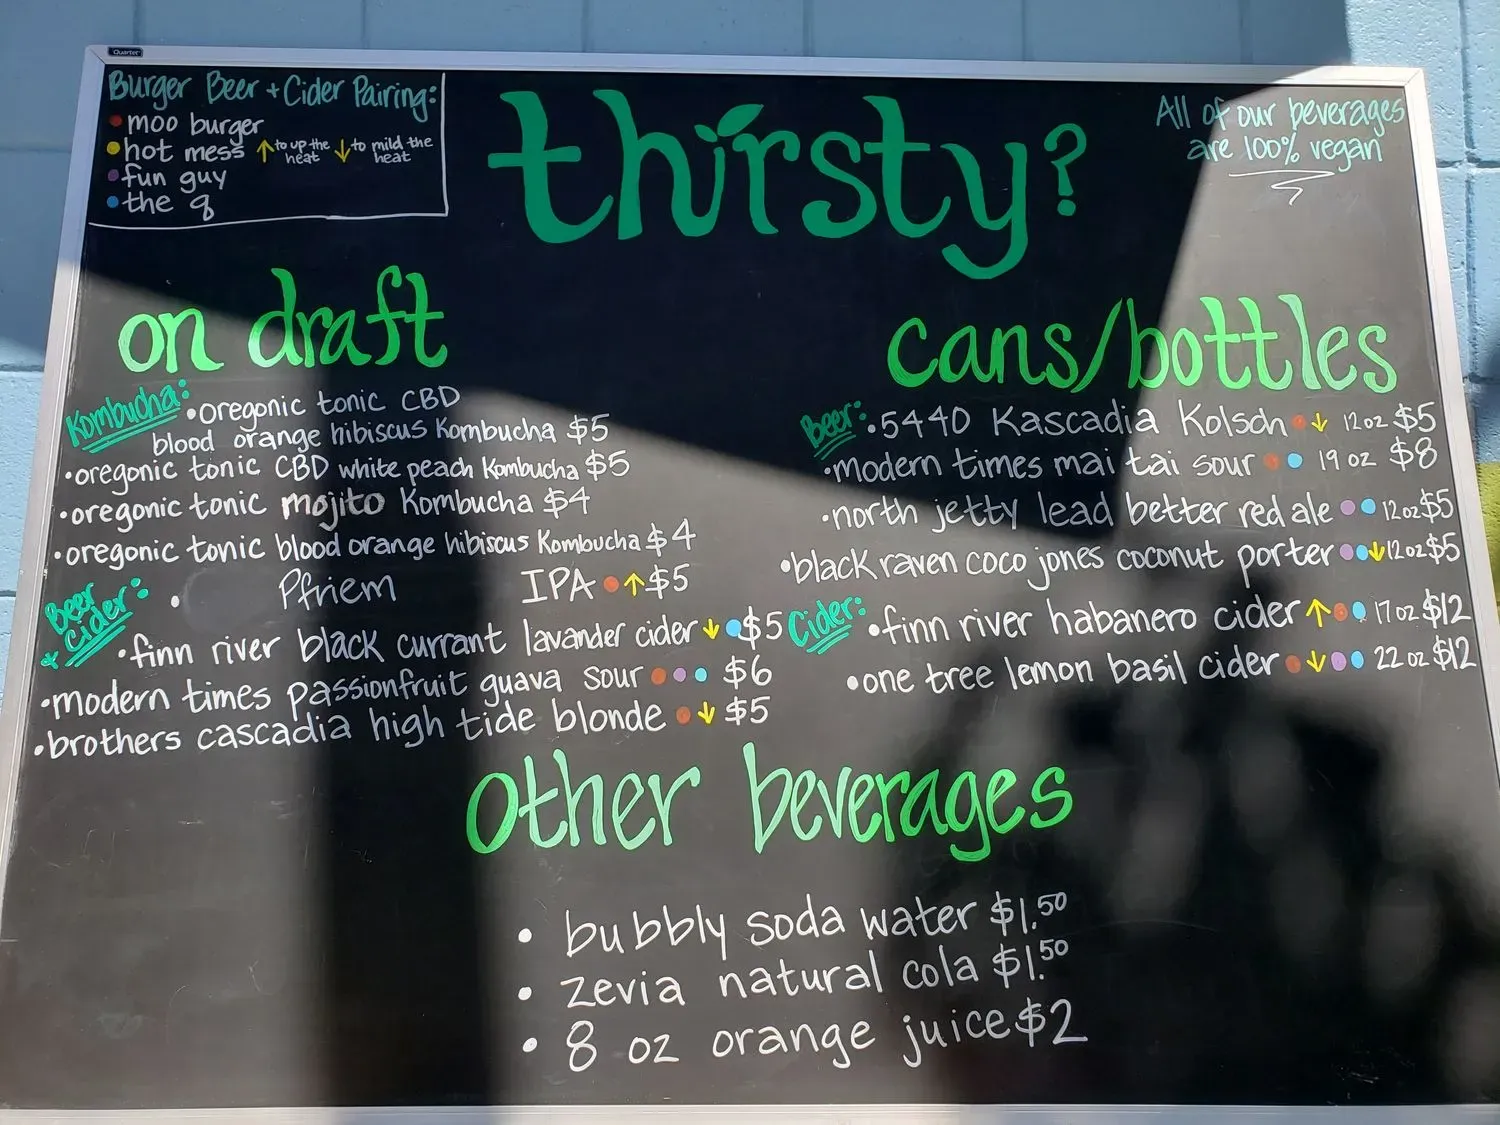 Quartet
Burger Beer + Cider Pairing:
moo burger
hot mess ↑ to up the heat ↓ to mild the heat
fun guy
the q
thirsty?
All of our beverages
are 100% vegan
on draft
Kombucha:
• oregonic tonic CBD
blood orange hibiscus Kombucha $5
• oregonic tonic CBD white peach Kombucha $5
• oregonic tonic mojito Kombucha $4
• oregonic tonic blood orange hibiscus Kombucha $4
Beer + Cider:
• Pfriem IPA ↑ $5
• finn river black currant lavander cider ↓ $5
• modern times passionfruit guava sour $6
• brothers cascadia high tide blonde ↓ $5
cans/bottles
Beer:
• 5440 Kascadia Kolsch ↓ 12oz $5
• modern times mai tai sour 19 oz $8
• north jetty lead better red ale 12oz $5
• black raven coco jones coconut porter ↓ 12oz $5
Cider:
• finn river habanero cider ↑ 17oz $12
• one tree lemon basil cider ↓ 22oz $12
other beverages
• bubbly soda water $1.50
• zevia natural cola $1.50
• 8 oz orange juice $2